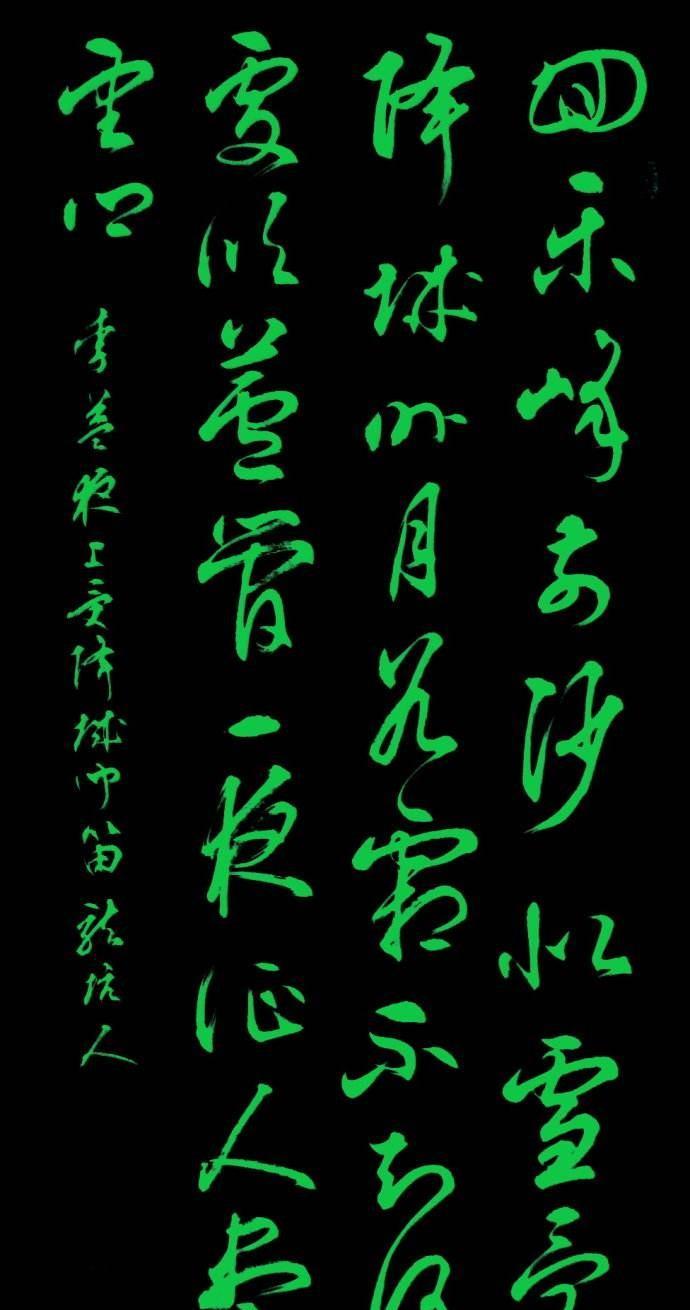 回乐峰前沙似雪受
降城外月若霜不知何
處吹蘆管一夜征人尽
望鄉
李益夜上受降城闻笛 龙坑人